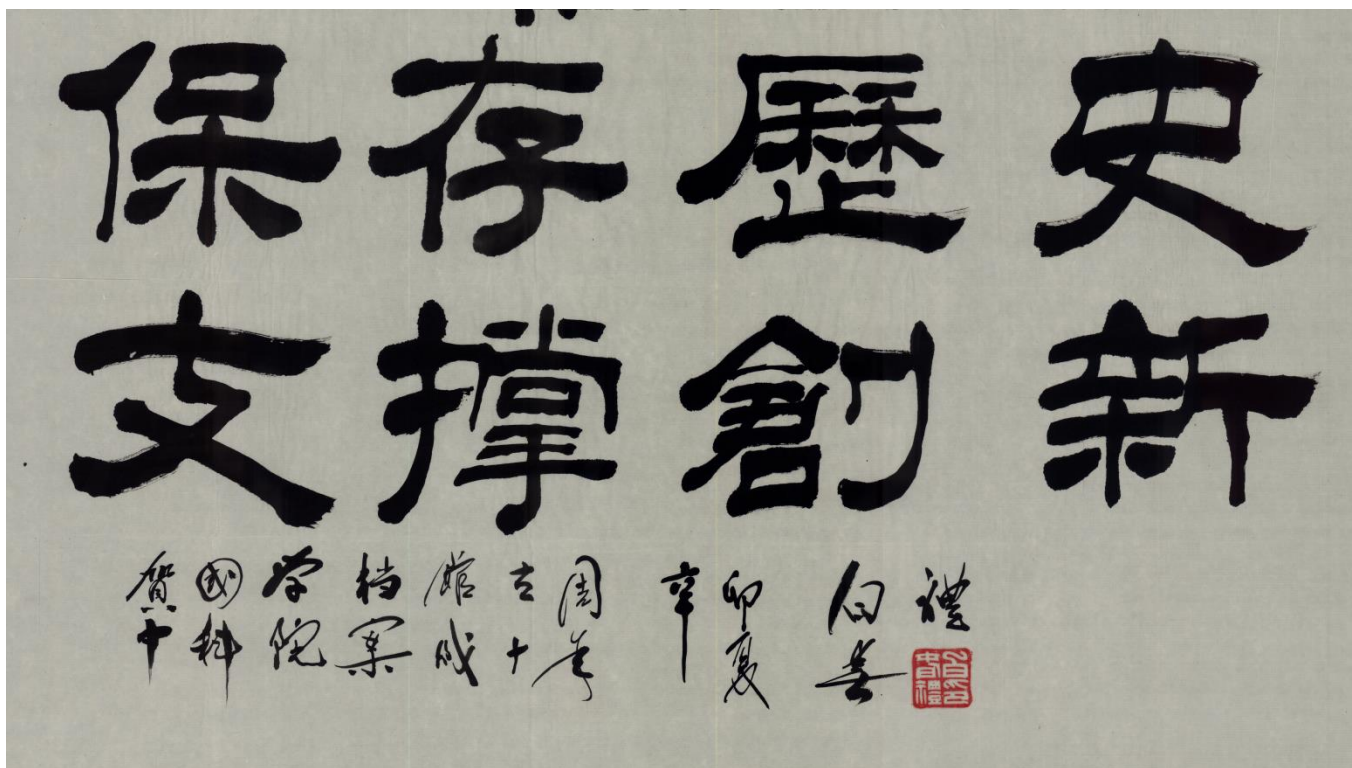 保存歷史
支撑創新
賀中
國科
学院
档案
館成
立十
周年
辛
卯夏
白春
禮